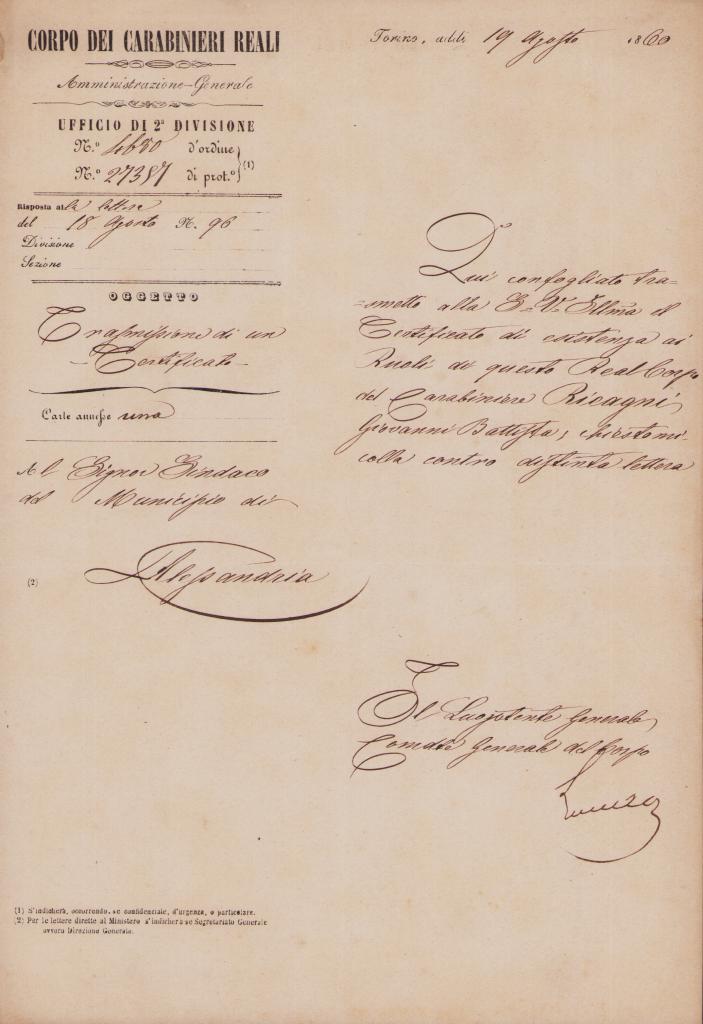 CORPO DEI CARABINIERI REALI
Amministrazione Generale
UFFICIO DI 2ª DIVISIONE
N.º 4680 d'ordine
N.º 27387 di prot.º (1)
Risposta alla lettera
del 18 Agosto N. 96
Divisione
Sezione
OGGETTO
Trasmissione di un
Certificato
Carte annesse una
Al Signor Sindaco
del Municipio di
(2) Alessandria
Torino, addì 19 Agosto 1860
Qui confogliato tra-
=smetto alla S. V. Illma il
Certificato di esistenza ai
Ruoli di questo Real Corpo
del Carabiniere Ricagni
Giovanni Battista, chiestomi
colla contro distinta lettera
Il Luogotente Generale
Comdte Generale del Corpo
(1) S'indicherà, occorrendo, se confidenziale, d'urgenza, o particolare.
(2) Per le lettere dirette al Ministero s'indicherà se Segretariato Generale
ovvero Direzione Generale.